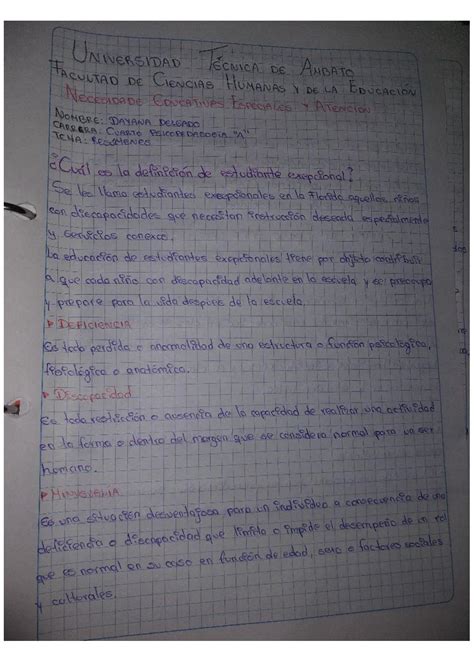 UNIVERSIDAD TÉCNICA DE AMBATO
FACULTAD DE CIENCIAS HUMANAS Y DE LA EDUCACIÓN
NECESIDADE EDUCATIVAS ESPECIALES Y ATENCION
NOMBRE: DAYANA DELGADO
CARRERA: CUARTO PSICOPEDAGOGIA "A"
TEMA: RESUMENES
¿Cuál es la definición de estudiante exepcional?
Se les llama estudiantes exepcionales en la Florida aquellos niños
con discapacidades que necesitan instrucción deseada especialmente
y servicios conexos.
La educación de estudiantes exepcionales tiene por objeto contribuir
a que cada niño con discapacidad adelante en la escuela y se
y prepare para la vida despues de la escuela.
DEFICIENCIA
Es toda perdida o anormalidad de una estructura o función psicológica,
fisiológica o anatómica.
Discapacidad
Es toda restricción o ausencia de la capacidad de realizar una actividad
en la forma o dentro del margen que se considera normal para un ser
humano.
MINUSVALIA
Es una situación desventajosa para un individuo a consecuencia de una
deficiencia o discapacidad que limita o impide el desempeño de un rol
que es normal en su caso en función de edad, sexo o factores sociales
y culturales.